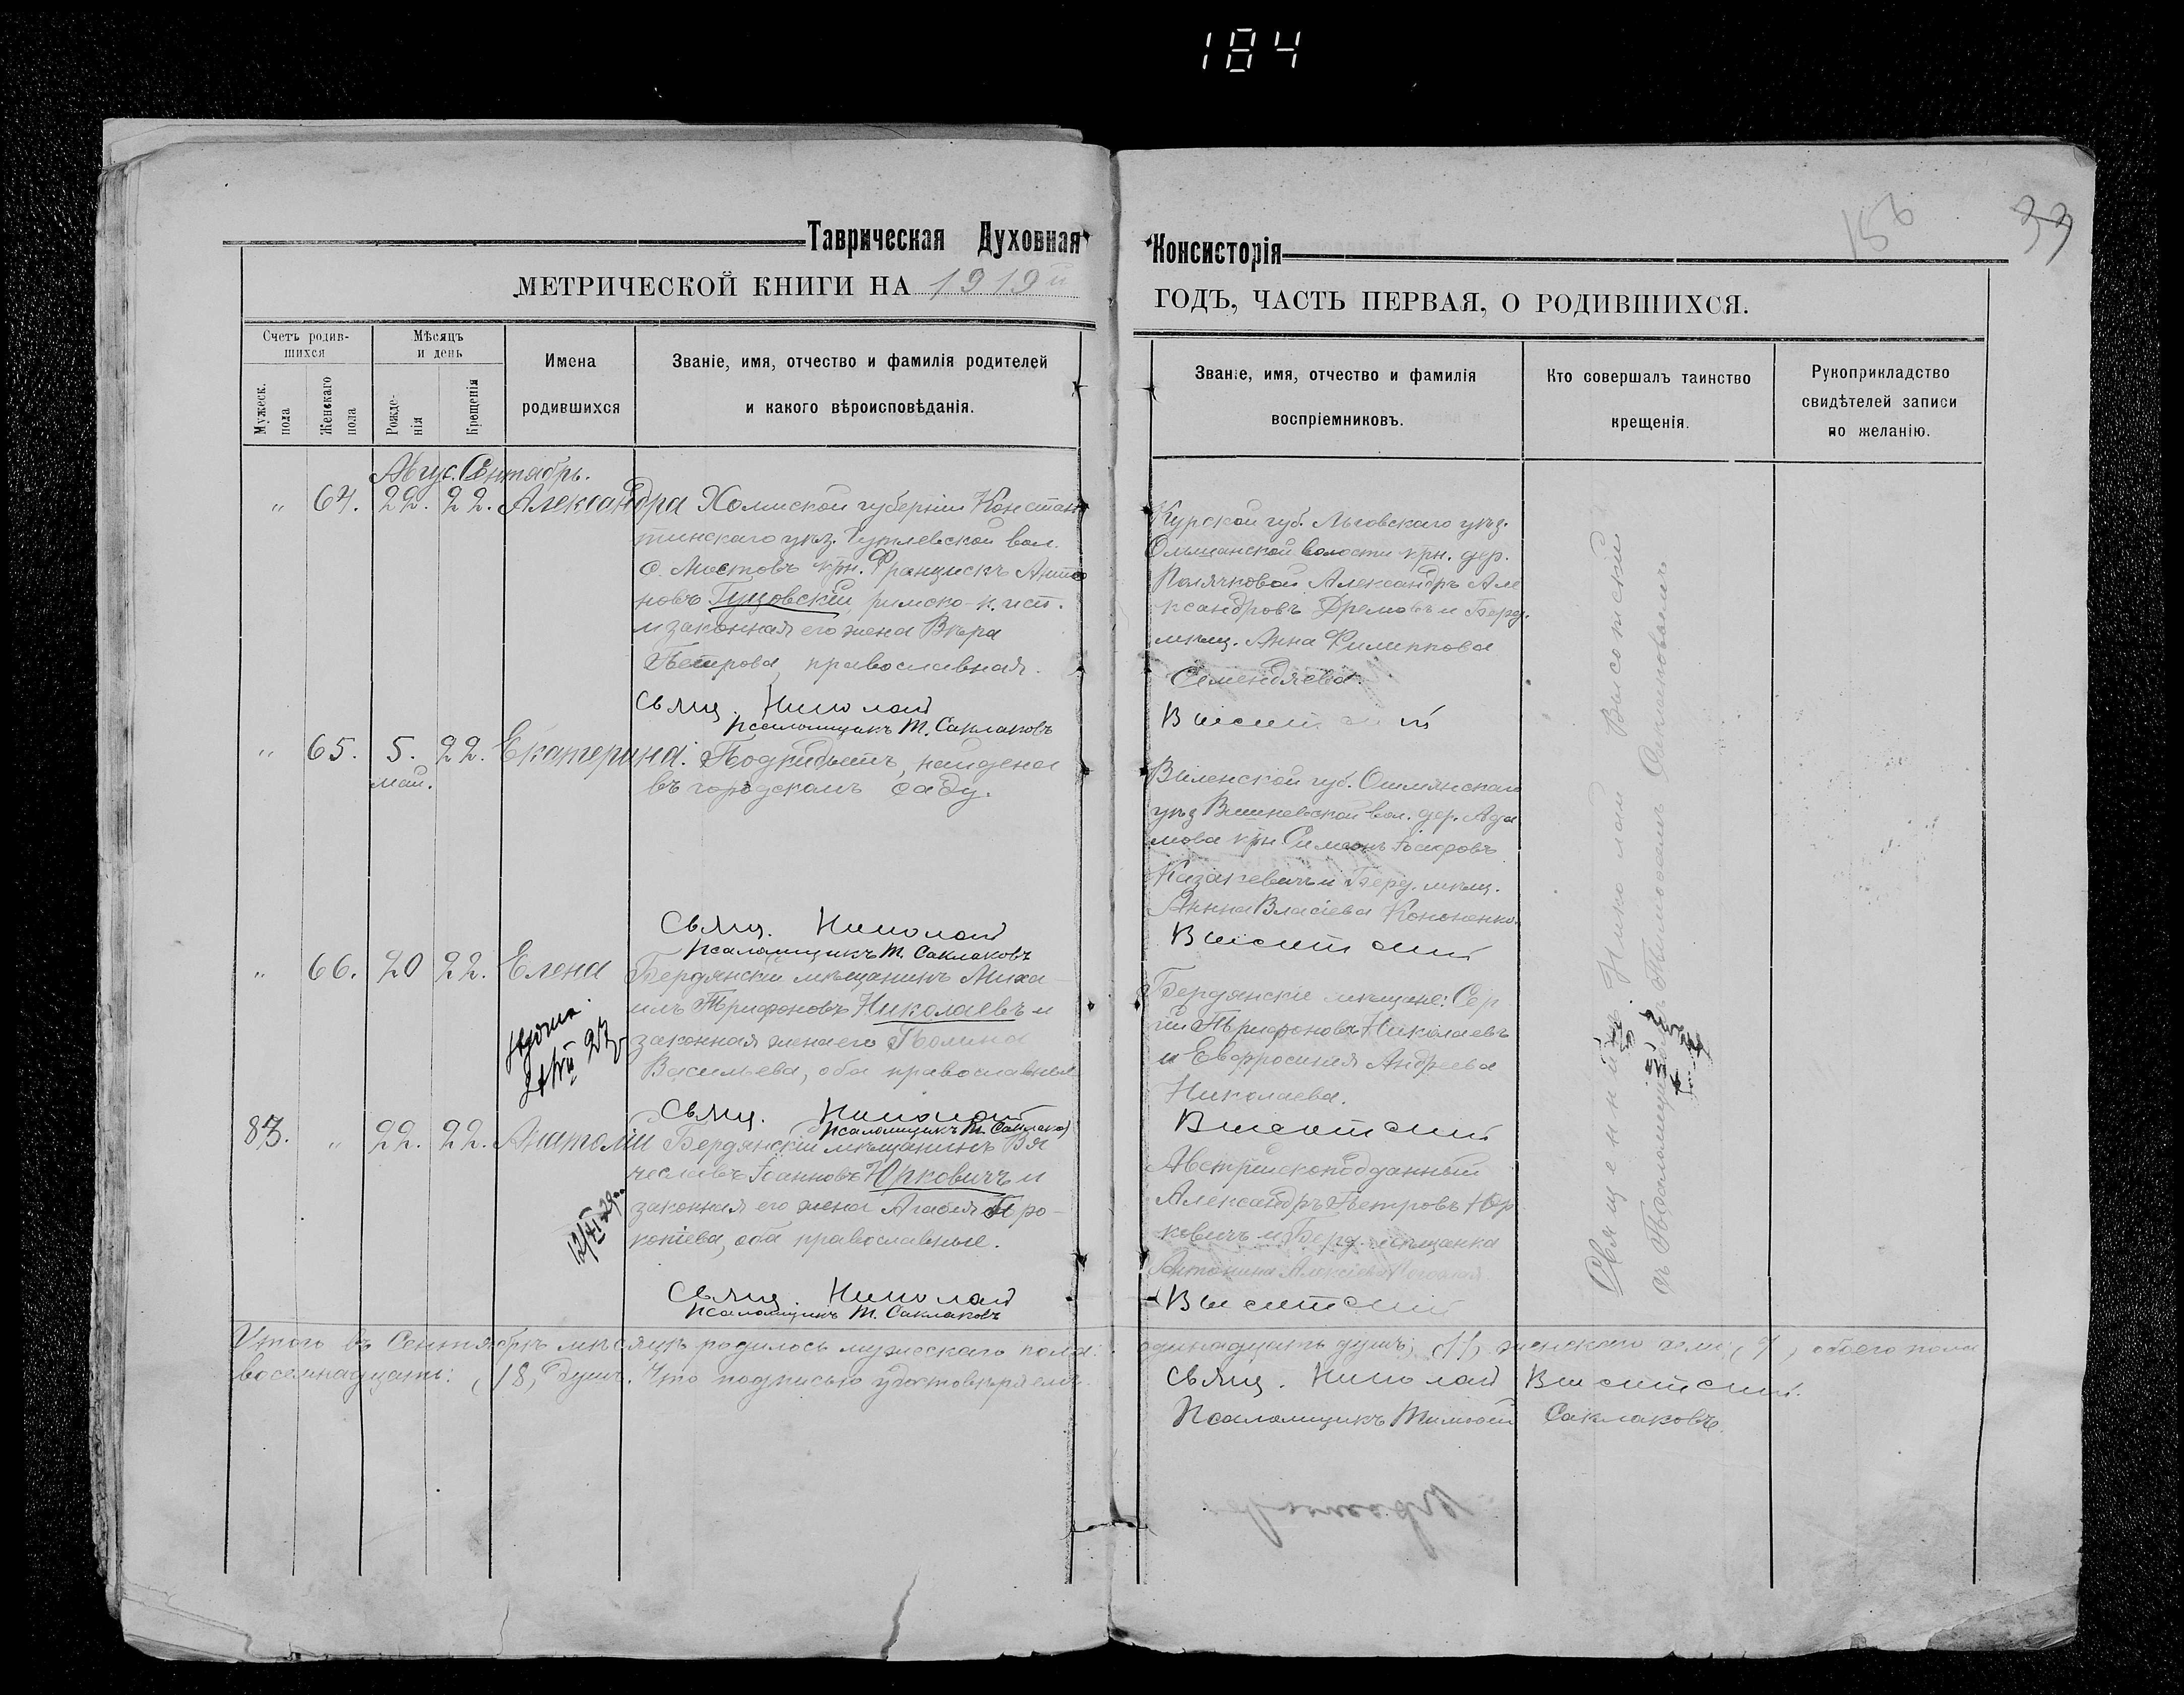 184
156
39
Таврическая Духовная
МЕТРИЧЕСКОЙ КНИГИ НА 1919й
Счетъ родив-
шихся
Мужеск. пола
Женскаго пола
Мѣсяцъ
и день
Рожде-
нія
Крещенія
Имена
родившихся
Званіе, имя, отчество и фамилія родителей
и какого вѣроисповѣданія.
Авгус. Сентябрь.
" 64. 22. 22. Александра Холмской губерніи Констан
тинскаго уѣз. вол.
с. Мостовъ крн. Францискъ Анто
новъ римско-к. исп.
и законная его жена Вѣра
Петрова, православная.
Свящ. Николай
Псаломщикъ Т. Саклаковъ
" 65. 5. 22. Екатерина. Подкидышъ, найдена
май.
въ городскомъ саду.
Свящ. Николай
Псаломщикъ Т. Саклаковъ
" 66. 20 22. Елена Бердянскій мѣщанинъ Миха
илъ Трифоновъ Николаевъ и
законная жена его Полина
Васильева, оба православные
Свящ. Николай
Псаломщикъ Т. Саклаковъ
83. " 22. 22. Анатолій Бердянскій мѣщанинъ Вя
чеславъ Іоанновъ Юрковичъ и
законная его жена Агафія Про-
копіева, оба православные.
Свящ. Николай
Псаломщикъ Т. Саклаковъ
Итого въ Сентябрѣ мѣсяцѣ родилось мужескаго пола:
восемнадцать: (18) душъ. Что подписью удостовѣряемъ.
Консисторія
ГОДЪ, ЧАСТЬ ПЕРВАЯ, О РОДИВШИХСЯ.
Званіе, имя, отчество и фамилія
воспріемниковъ.
Кто совершалъ таинство
крещенія.
Рукоприкладство
свидѣтелей записи
по желанію.
Курской губ. Льговскаго уѣз.
Ольшанской волости крн. дер.
Александръ Але
ксандровъ Дремовъ и Берд.
мѣщ. Анна Филиппова
Семендяева.
Высотскій
Виленской губ. Ошмянскаго
уѣз Вишневской вол. дер. Ада
мова крн Симеонъ Іосифовъ
Казакевичъ и Берд. мѣщ.
Анна Власіева Кононенко.
Высотскій
Бердянскіе мѣщане: Сер
гій Трифоновъ Николаевъ
и Евфросинія Андреева
Николаева.
Высотскій
Австрійскоподданный
Александръ Петровъ Юр
ковичъ и Берд. мѣщанка
Антонина Алексіева
Высотскій
Священникъ Николай Высотскій
съ Псаломщикомъ Тимофеемъ Саклаковымъ
одинадцать душъ; (11), женскаго семь (7), обоего пола
Свящ. Николай Высотскій.
Псаломщикъ Тимофей Саклаковъ.